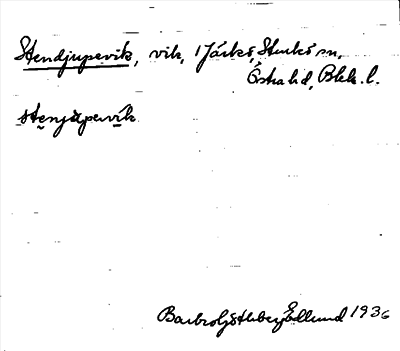 Stendjupevik, vik, i Járkö, Sturkö sn,
Östra hd, Blek. l.
stenjupevik
Barbro Edlund 1936